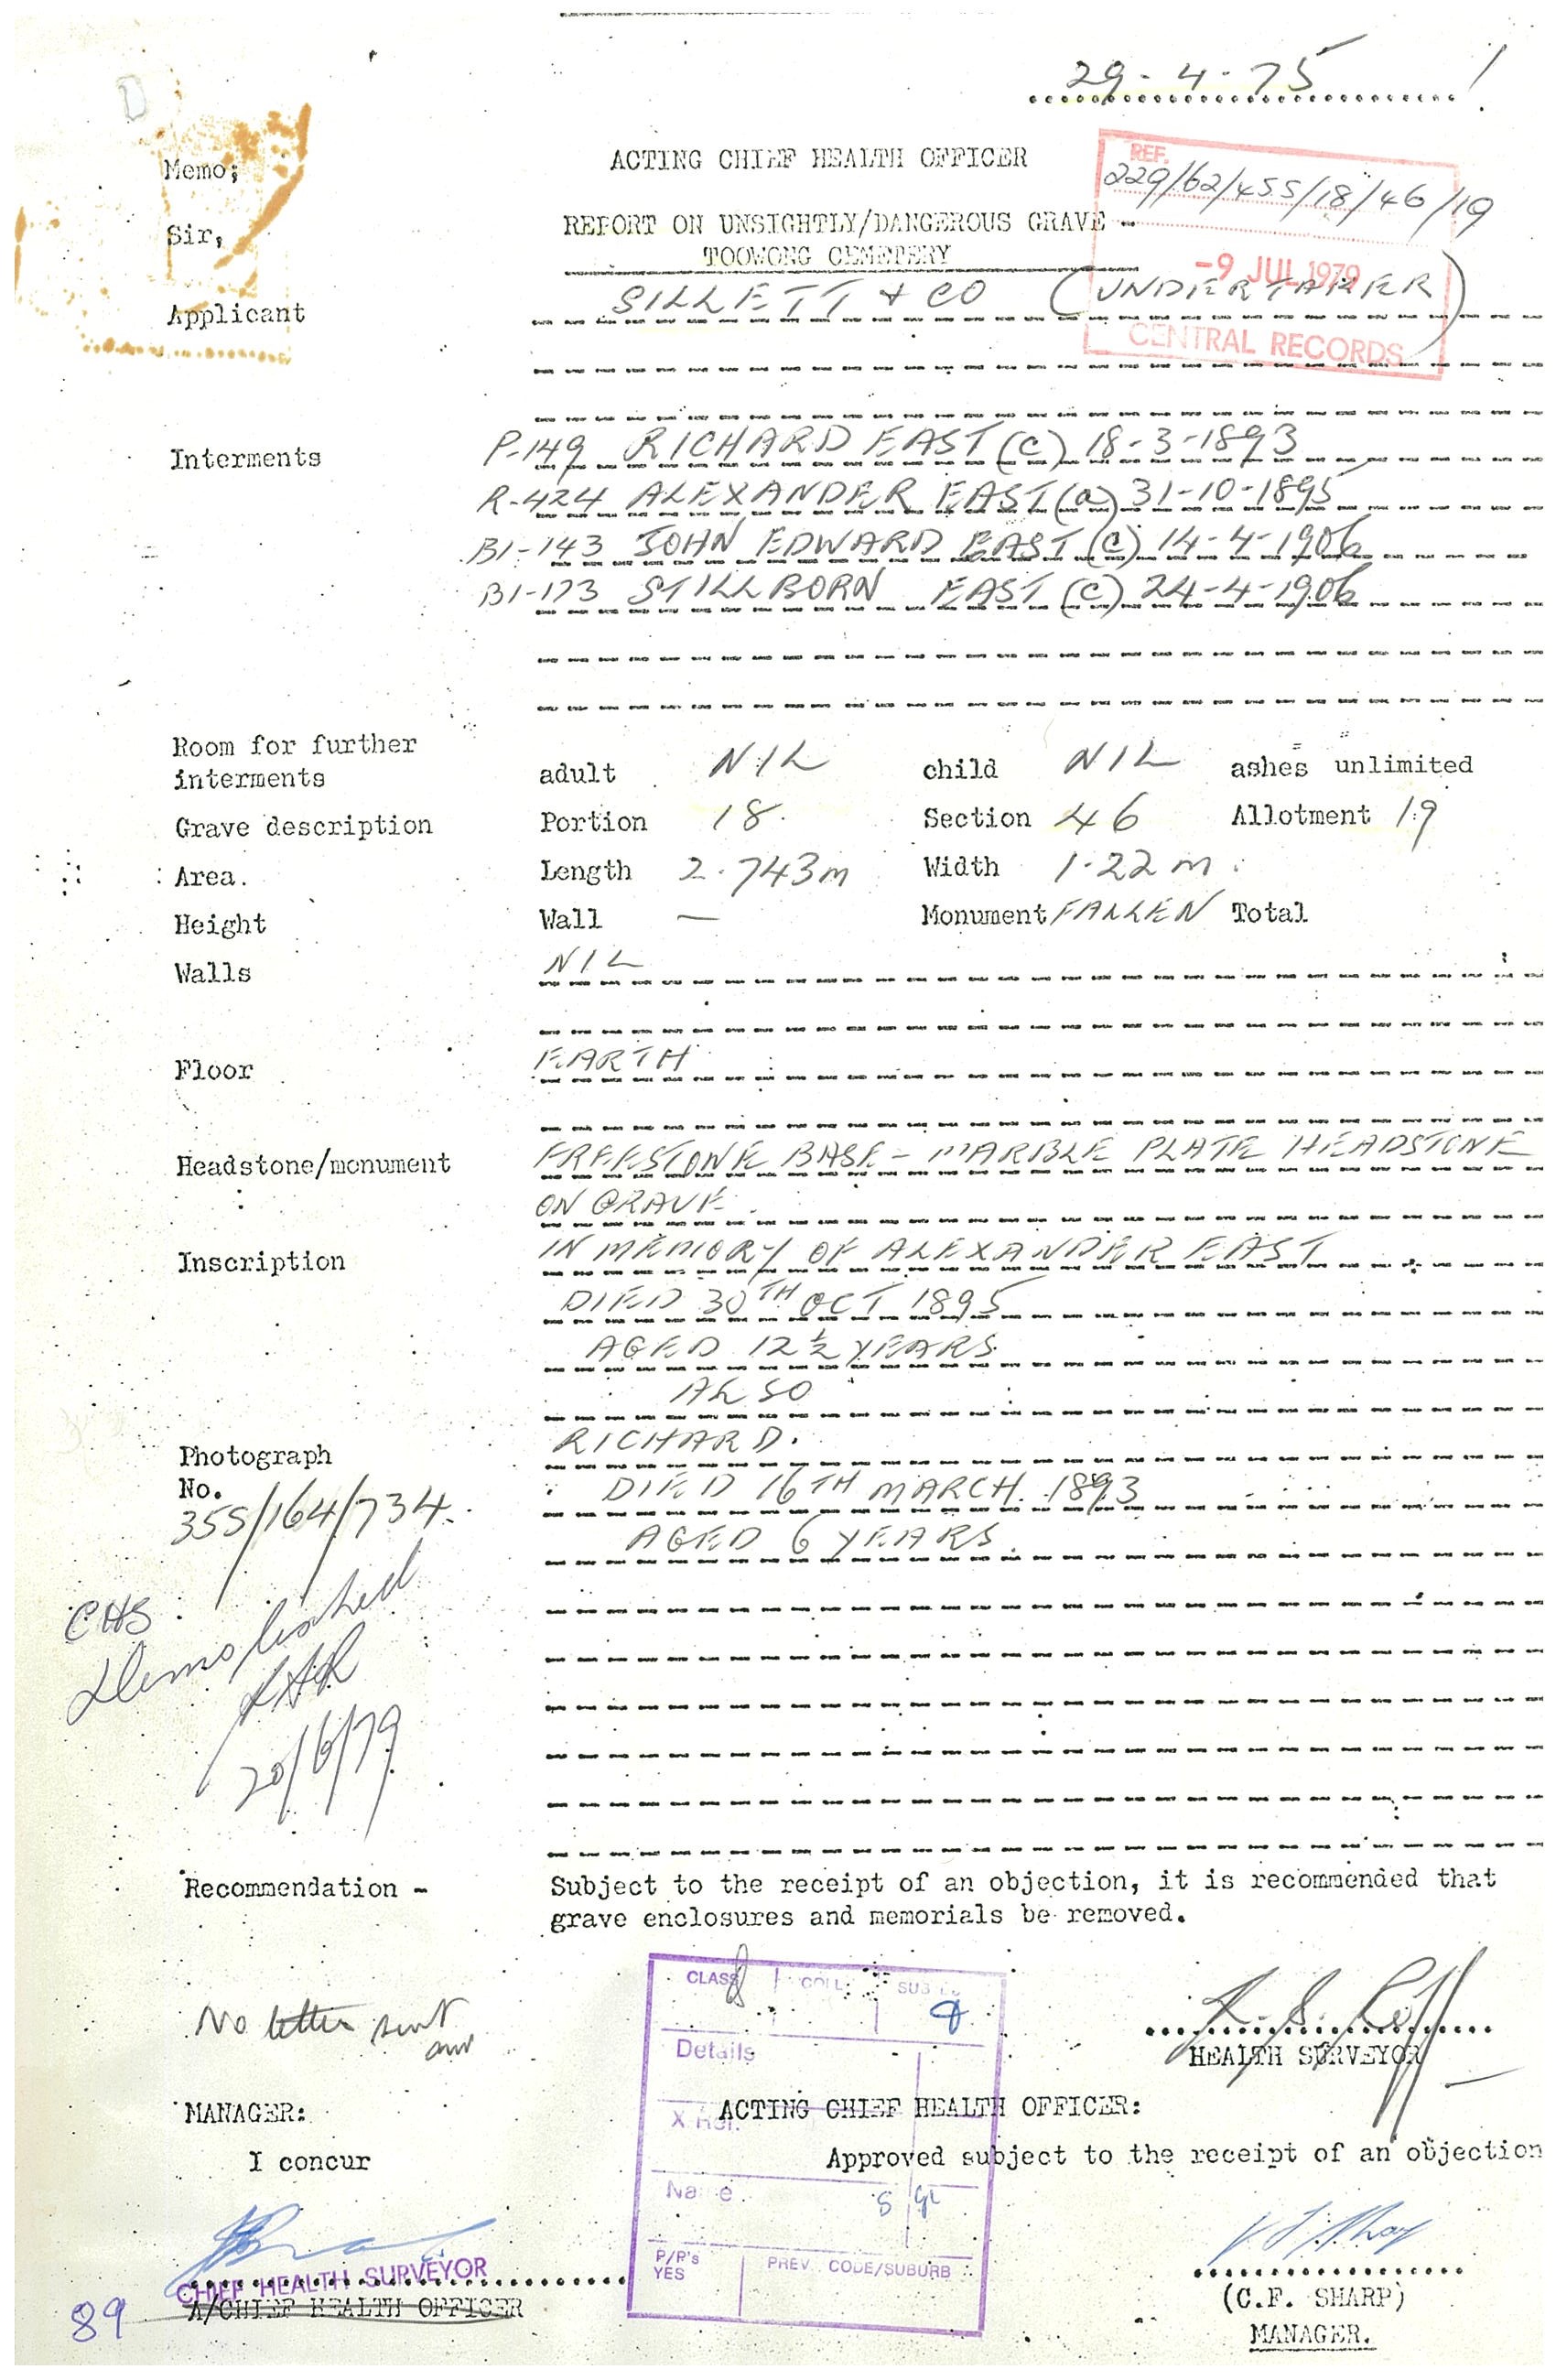 29-4-75
ACTING CHIEF HEALTH OFFICER
REF.
229/62/455/18/46/19
Memo;
REPORT ON UNSIGHTLY/DANGEROUS GRAVE -
TOOWONG CEMETERY
Sir,
-9 JUL 1979
CENTRAL RECORDS
Applicant SILLETT & CO (UNDERTAKER)
Interments P-149 RICHARD EAST (C) 18-3-1893
R-424 ALEXANDER EAST (a) 31-10-1895
B1-143 JOHN EDWARD EAST (C) 14-4-1906
B1-173 STILLBORN EAST (C) 24-4-1906
Room for further
interments adult NIL child NIL ashes unlimited
Grave description Portion 18. Section 46 Allotment 19
Area. Length 2.743m Width 1.22m.
Height Wall — Monument FALLEN Total
Walls NIL
Floor EARTH
Headstone/monument FREESTONE BASE - MARBLE PLATE HEADSTONE
ON GRAVE.
Inscription IN MEMORY OF ALEXANDER EAST
DIED 30TH OCT 1895
AGED 12½ YEARS
ALSO
RICHARD.
DIED 16TH MARCH. 1893
AGED 6 YEARS.
Photograph
No.
355/164/734.
CHS
Demolished
20/6/79
Recommendation - Subject to the receipt of an objection, it is recommended that
grave enclosures and memorials be removed.
CLASS COLL SUB
Details
X Ref.
Name
P/P's
YES
PREV. CODE/SUBURB
No letter sent
HEALTH SURVEYOR
MANAGER: ACTING CHIEF HEALTH OFFICER:
I concur Approved subject to the receipt of an objection
CHIEF HEALTH SURVEYOR
A/CHIEF HEALTH OFFICER
(C.F. SHARP)
MANAGER.
89